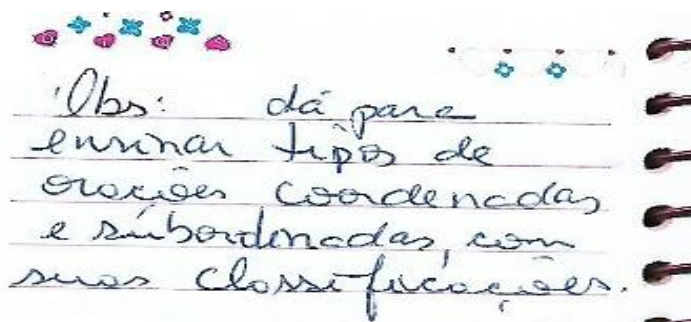 Obs: dá para
ensinar tipos de
orações coordenadas
e subordinadas, com
suas classificações.